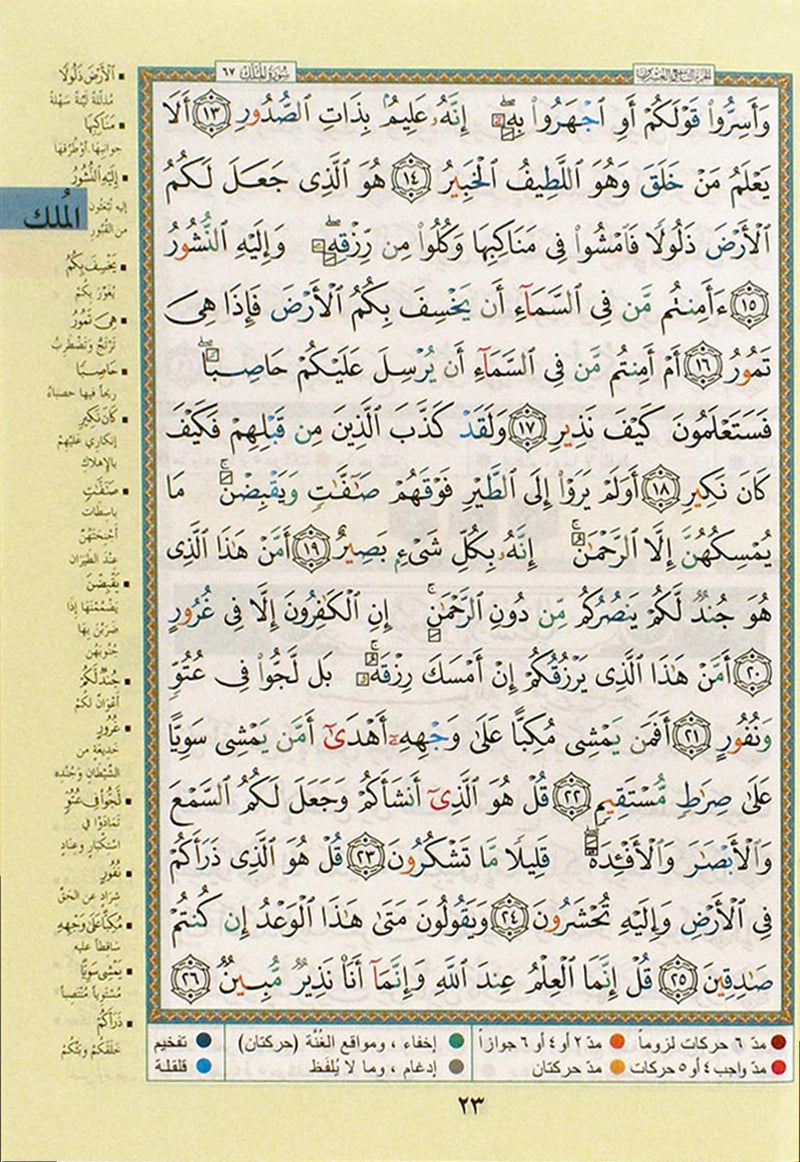 الجزء التاسع والعشرون
سُورَةُ المُلك ٦٧
وَأَسِرُّوا۟ قَوْلَكُمْ أَوِ ٱجْهَرُوا۟ بِهِۦٓ ۖ إِنَّهُۥ عَلِيمُۢ بِذَاتِ ٱلصُّدُورِ ١٣ أَلَا
يَعْلَمُ مَنْ خَلَقَ وَهُوَ ٱللَّطِيفُ ٱلْخَبِيرُ ١٤ هُوَ ٱلَّذِى جَعَلَ لَكُمُ
ٱلْأَرْضَ ذَلُولًا فَٱمْشُوا۟ فِى مَنَاكِبِهَا وَكُلُوا۟ مِن رِّزْقِهِۦ ۖ وَإِلَيْهِ ٱلنُّشُورُ
١٥ ءَأَمِنتُم مَّن فِى ٱلسَّمَآءِ أَن يَخْسِفَ بِكُمُ ٱلْأَرْضَ فَإِذَا هِىَ
تَمُورُ ١٦ أَمْ أَمِنتُم مَّن فِى ٱلسَّمَآءِ أَن يُرْسِلَ عَلَيْكُمْ حَاصِبًا ۖ
فَسَتَعْلَمُونَ كَيْفَ نَذِيرِ ١٧ وَلَقَدْ كَذَّبَ ٱلَّذِينَ مِن قَبْلِهِمْ فَكَيْفَ
كَانَ نَكِيرِ ١٨ أَوَلَمْ يَرَوْا۟ إِلَى ٱلطَّيْرِ فَوْقَهُمْ صَٰٓفَّٰتٍ وَيَقْبِضْنَ ۚ مَا
يُمْسِكُهُنَّ إِلَّا ٱلرَّحْمَٰنُ ۚ إِنَّهُۥ بِكُلِّ شَىْءٍۭ بَصِيرٌ ١٩ أَمَّنْ هَٰذَا ٱلَّذِى
هُوَ جُندٌ لَّكُمْ يَنصُرُكُم مِّن دُونِ ٱلرَّحْمَٰنِ ۚ إِنِ ٱلْكَٰفِرُونَ إِلَّا فِى غُرُورٍ
٢٠ أَمَّنْ هَٰذَا ٱلَّذِى يَرْزُقُكُمْ إِنْ أَمْسَكَ رِزْقَهُۥ ۚ بَل لَّجُّوا۟ فِى عُتُوٍّ
وَنُفُورٍ ٢١ أَفَمَن يَمْشِى مُكِبًّا عَلَىٰ وَجْهِهِۦٓ أَهْدَىٰٓ أَمَّن يَمْشِى سَوِيًّا
عَلَىٰ صِرَٰطٍ مُّسْتَقِيمٍ ٢٢ قُلْ هُوَ ٱلَّذِىٓ أَنشَأَكُمْ وَجَعَلَ لَكُمُ ٱلسَّمْعَ
وَٱلْأَبْصَٰرَ وَٱلْأَفْـِٔدَةَ ۖ قَلِيلًا مَّا تَشْكُرُونَ ٢٣ قُلْ هُوَ ٱلَّذِى ذَرَأَكُمْ
فِى ٱلْأَرْضِ وَإِلَيْهِ تُحْشَرُونَ ٢٤ وَيَقُولُونَ مَتَىٰ هَٰذَا ٱلْوَعْدُ إِن كُنتُمْ
صَٰدِقِينَ ٢٥ قُلْ إِنَّمَا ٱلْعِلْمُ عِندَ ٱللَّهِ وَإِنَّمَآ أَنَا۠ نَذِيرٌ مُّبِينٌ ٢٦
▪ ٱلْأَرْضَ ذَلُولًا
مُذَلَّلَةً لَيِّنَةً سَهْلَةً
▪ مَنَاكِبِهَا
جوانبها، أو طُرُقها
▪ إِلَيْهِ ٱلنُّشُورُ
إليه تُبْعَثون
من القُبُورِ
الْمُلك
▪ يَخْسِفَ بِكُمُ
يُغَوِّرَ بِكُمْ
▪ هِىَ تَمُورُ
تَرْتَجُّ وَتَضْطَرِبُ
▪ حَاصِبًا
ريحاً فيها حصباءُ
▪ كَانَ نَكِيرِ
إنكاري عَلَيْهِمْ
بالإهلاكِ
▪ صَٰٓفَّٰتٍ
باسطات
أجْنِحَتَهُنَّ
عِنْدَ الطَّيَرَان
▪ يَقْبِضْنَ
يَضْمُمْنَهَا إذا
ضَرَبْنَ بِهَا
جُنُوبَهُنَّ
▪ جُندٌ لَّكُمْ
أعْوَانٌ لكُمْ
▪ غُرُورٍ
خَديعَةٍ من
الشَّيْطَان وَجُنْدِه
▪ لَّجُّوا۟ فِى عُتُوٍّ
تَمَادَوْا في
اسْتِكْبَارٍ وعنادٍ
▪ نُفُورٍ
شِرَادٍ عن الحَقِّ
▪ مُكِبًّا عَلَىٰ وَجْهِهِ
سَاقطاً عليه
▪ يَمْشِى سَوِيًّا
مُسْتَوياً مُنْتَصِباً
▪ ذَرَأَكُمْ
خَلَقَكُمْ وَبَثَّكُمْ
مدّ ٦ حركات لزوماً
مدّ ٢ أو ٤ أو ٦ جوازاً
إخفاء ، ومواقع الغُنَّة (حركتان)
تفخيم
مدّ واجب ٤ أو ٥ حركات
مدّ حركتان
إدغام ، وما لا يُلفَظ
قلقلة
٢٣